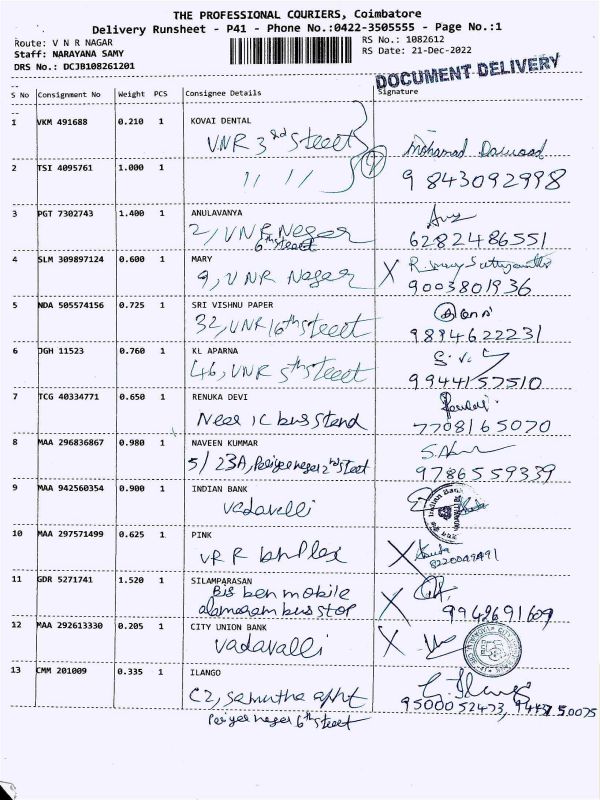 THE PROFESSIONAL COURIERS, Coimbatore
Delivery Runsheet - P41 - Phone No.:0422-3505555 - Page No.:1
Route: V N R NAGAR
RS No.: 1082612
Staff: NARAYANA SAMY
RS Date: 21-Dec-2022
DRS No.: DCJB108261201
DOCUMENT DELIVERY
S No Consignment No Weight PCS Consignee Details Signature
1 VKM 491688 0.210 1 KOVAI DENTAL
VNR 3rd Street
Mohamad Dawood
2 TSI 4095761 1.000 1
11 11
9843092998
3 PGT 7302743 1.400 1 ANULAVANYA
2, VNR Nagar
6th Street
6282486551
4 SLM 309897124 0.600 1 MARY
9, VNR Nagar
9003801936
5 NDA 505574156 0.725 1 SRI VISHNU PAPER
32, VNR 6th Street
9894622231
6 JGH 11523 0.760 1 KL APARNA
46, VNR 5th Street
9944157510
7 TCG 40334771 0.650 1 RENUKA DEVI
Near IC bus stand
7708165070
8 MAA 296836867 0.980 1 NAVEEN KUMMAR
5/23A, Periyar nagar 2nd Street
9786559339
9 MAA 942560354 0.900 1 INDIAN BANK
Vadavalli
Indian Bank
10 MAA 297571499 0.625 1 PINK
VRR
8220049491
11 GDR 5271741 1.520 1 SILAMPARASAN
mobile
bus stop
9942691609
12 MAA 292613330 0.205 1 CITY UNION BANK
Vadavalli
13 CMM 201009 0.335 1 ILANGO
C2,
9500052473,
6th Street